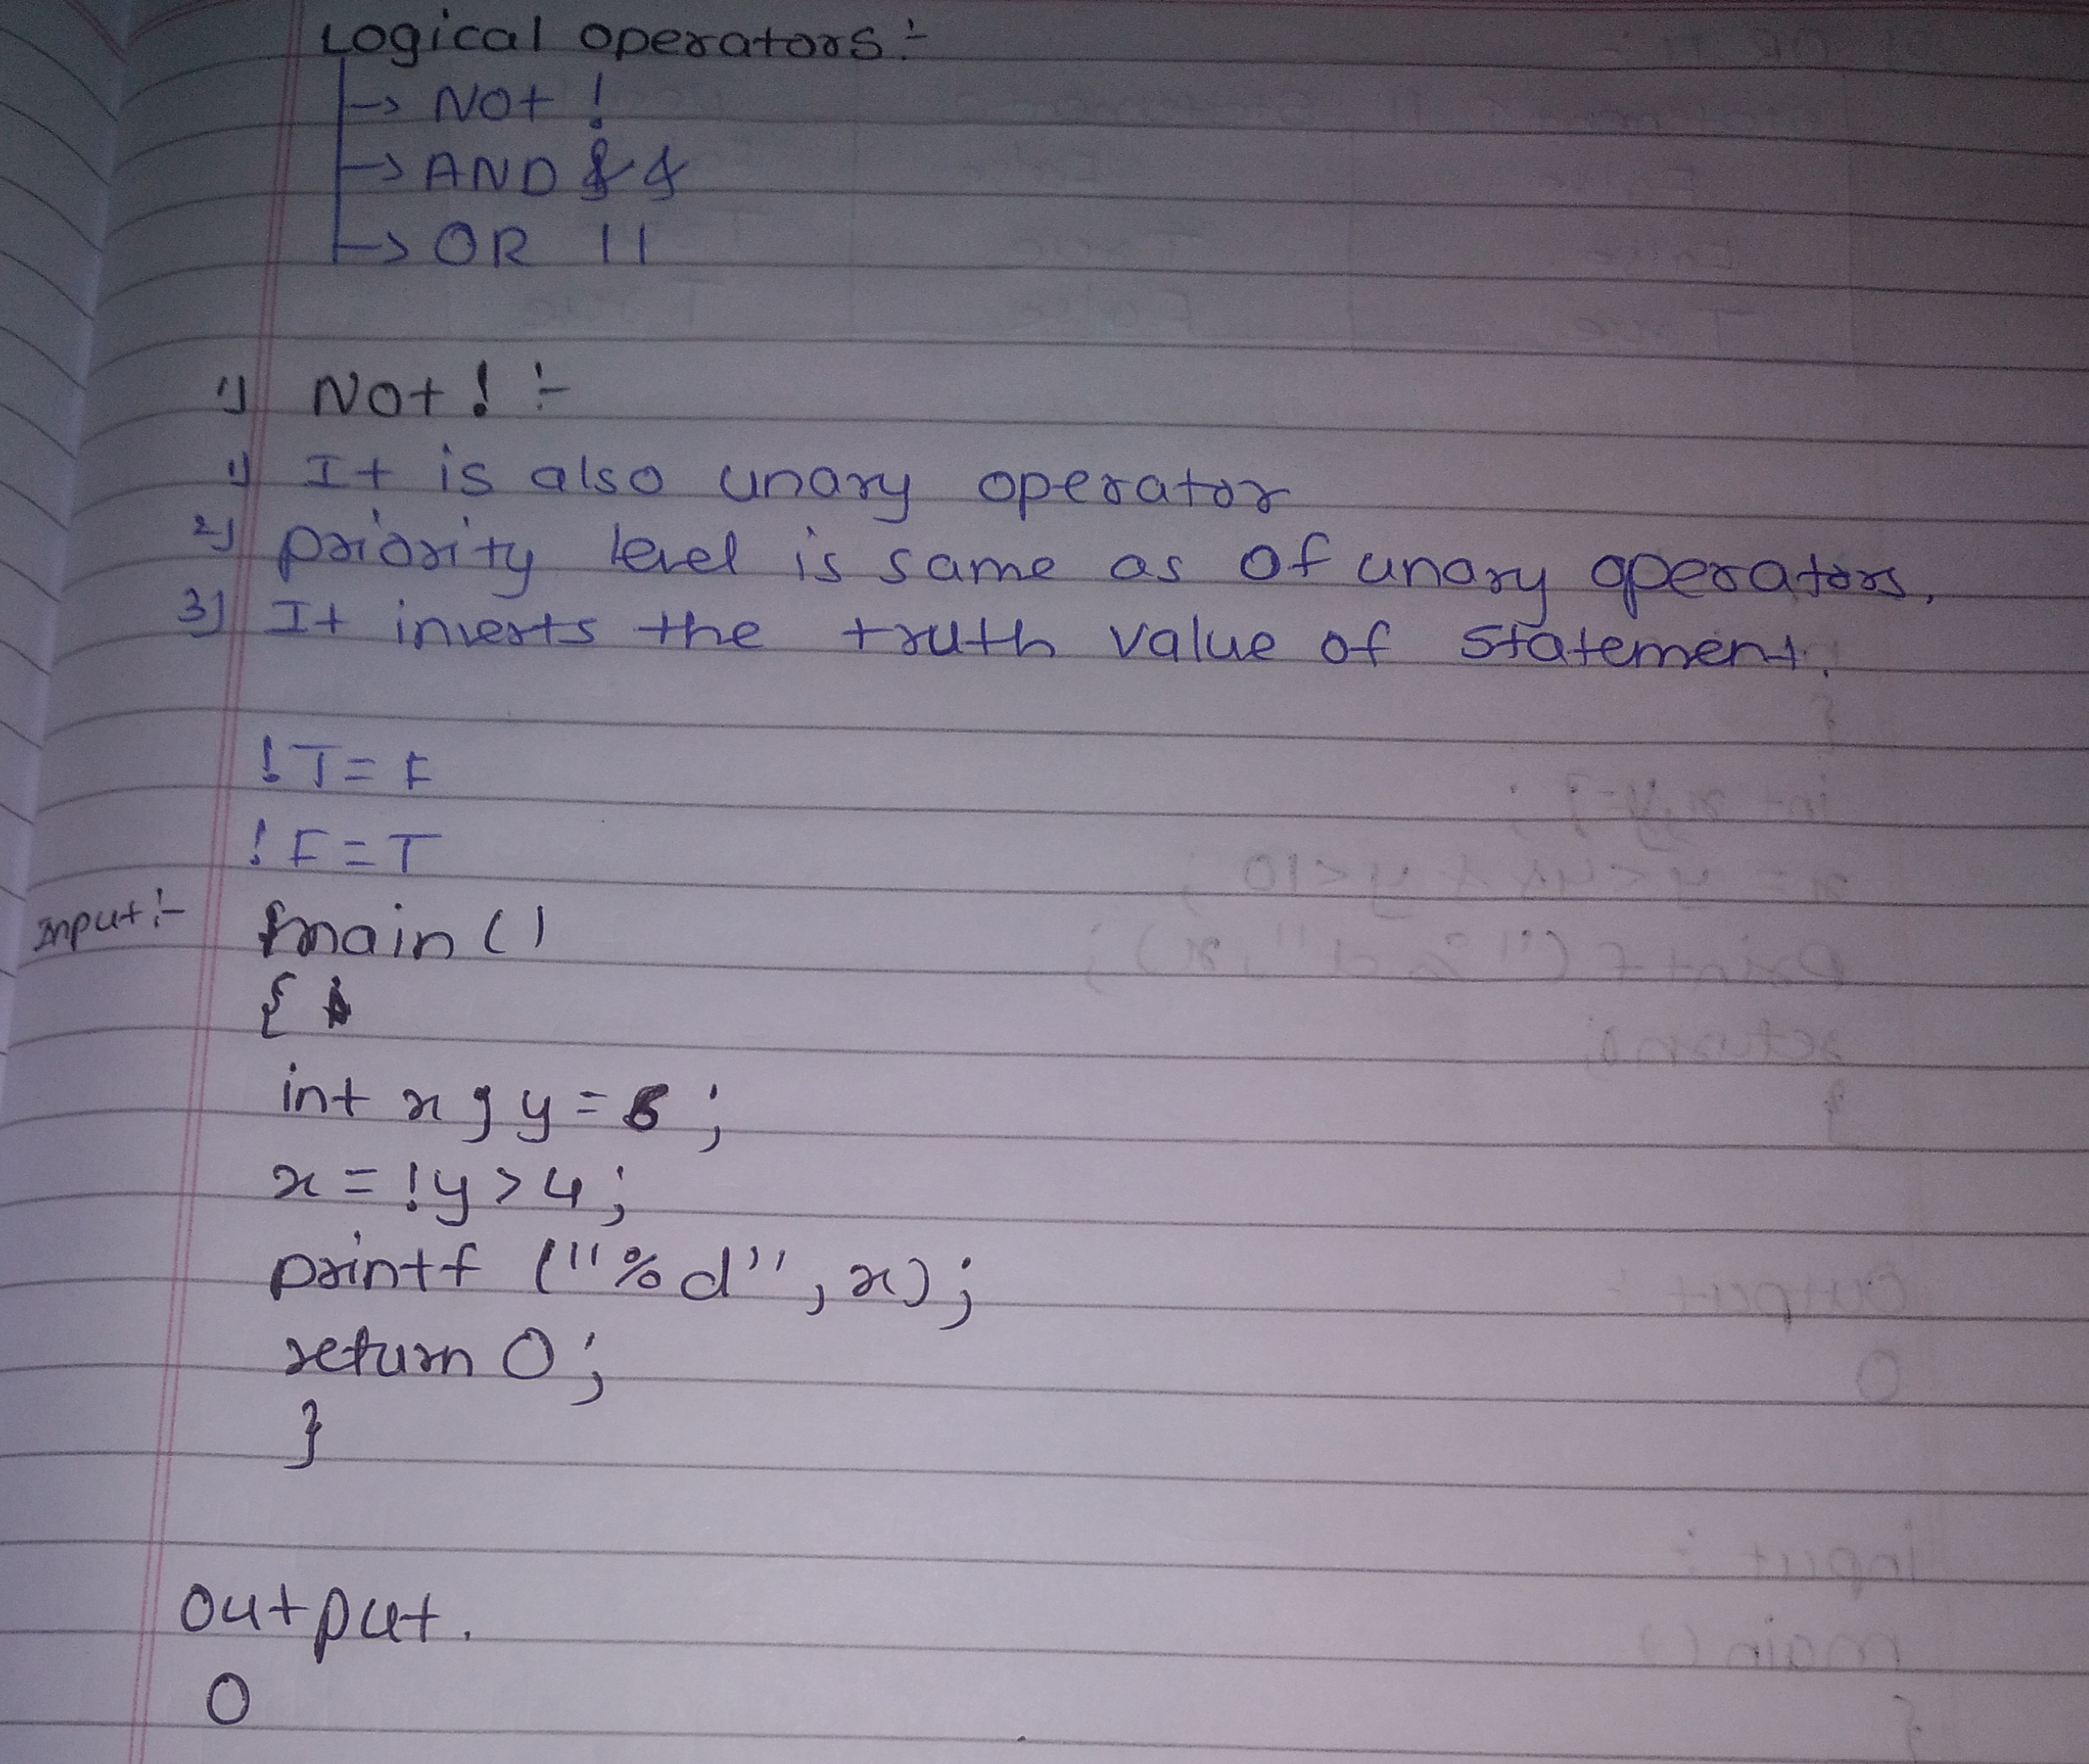 Logical operators :-
→ NOt !
→ AND &&
→ OR ||
1) NOt ! :-
1) It is also unary operator
2) priority level is same as of unary operators.
3) It inverts the truth value of statement.
!T = F
!F = T
Input :- main ()
{
int x, y = 5 ;
x = !y > 4 ;
printf ("%d", x) ;
return 0 ;
}
output.
0